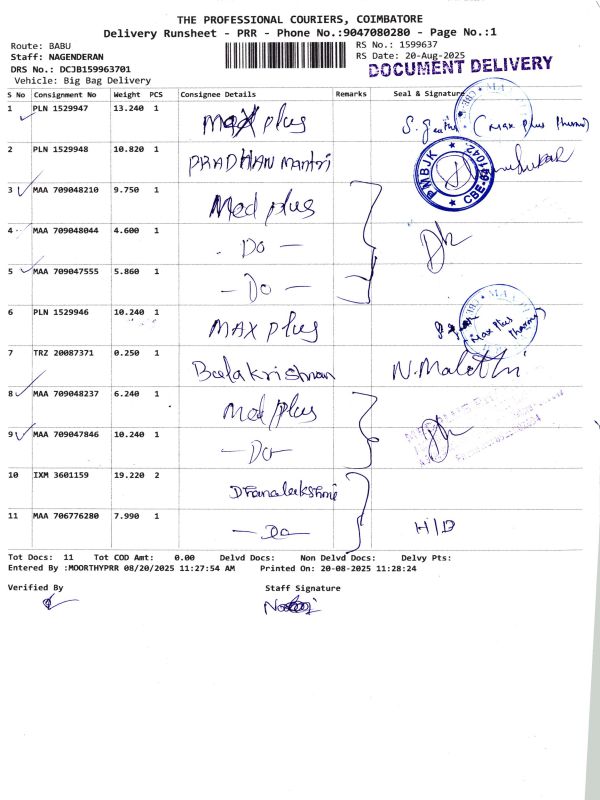 THE PROFESSIONAL COURIERS, COIMBATORE
Delivery Runsheet - PRR - Phone No.:9047080280 - Page No.:1
Route: BABU
Staff: NAGENDERAN
DRS No.: DCJB159963701
Vehicle: Big Bag Delivery
RS No.: 1599637
RS Date: 20-Aug-2025
DOCUMENT DELIVERY
S No Consignment No Weight PCS Consignee Details Remarks Seal & Signature
1 PLN 1529947 13.240 1 Max plus (Max plus Pharma)
2 PLN 1529948 10.820 1 PRADHAN Mantri PMBJK CBE-641042
3 MAA 709048210 9.750 1 Med plus
4 MAA 709048044 4.600 1 - Do -
5 MAA 709047555 5.860 1 - Do -
6 PLN 1529946 10.240 1 MAX plus (Max plus Pharma)
7 TRZ 20087371 0.250 1 Balakrishnan N. Malathi
8 MAA 709048237 6.240 1 Med plus
9 MAA 709047846 10.240 1 - Do -
10 IXM 3601159 19.220 2 Dhanalakshmi
11 MAA 706776280 7.990 1 - Do - H/D
Tot Docs: 11 Tot COD Amt: 0.00 Delvd Docs: Non Delvd Docs: Delvy Pts:
Entered By :MOORTHYPRR 08/20/2025 11:27:54 AM Printed On: 20-08-2025 11:28:24
Verified By Staff Signature